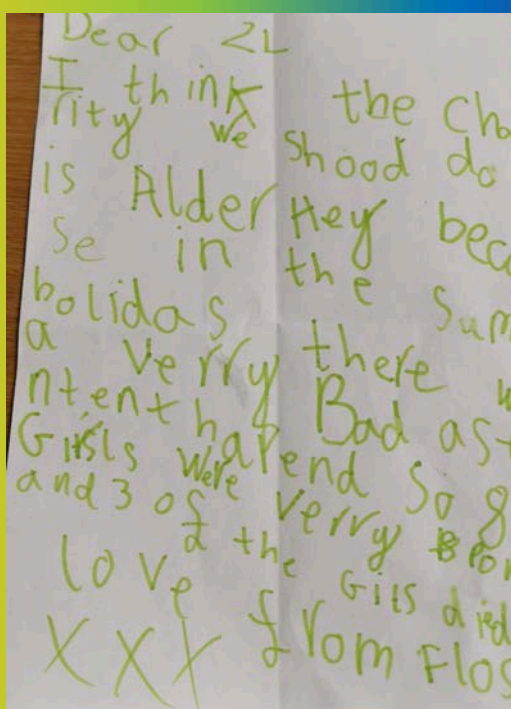 Dear 2L
I think the cha
rity we shood do
is Alder Hey beca
se in the sum
holidas there w
a verry Bad as
ntent hapend So 8
Girls were verry
and 3 of the Gils died
love from Flos
XXX